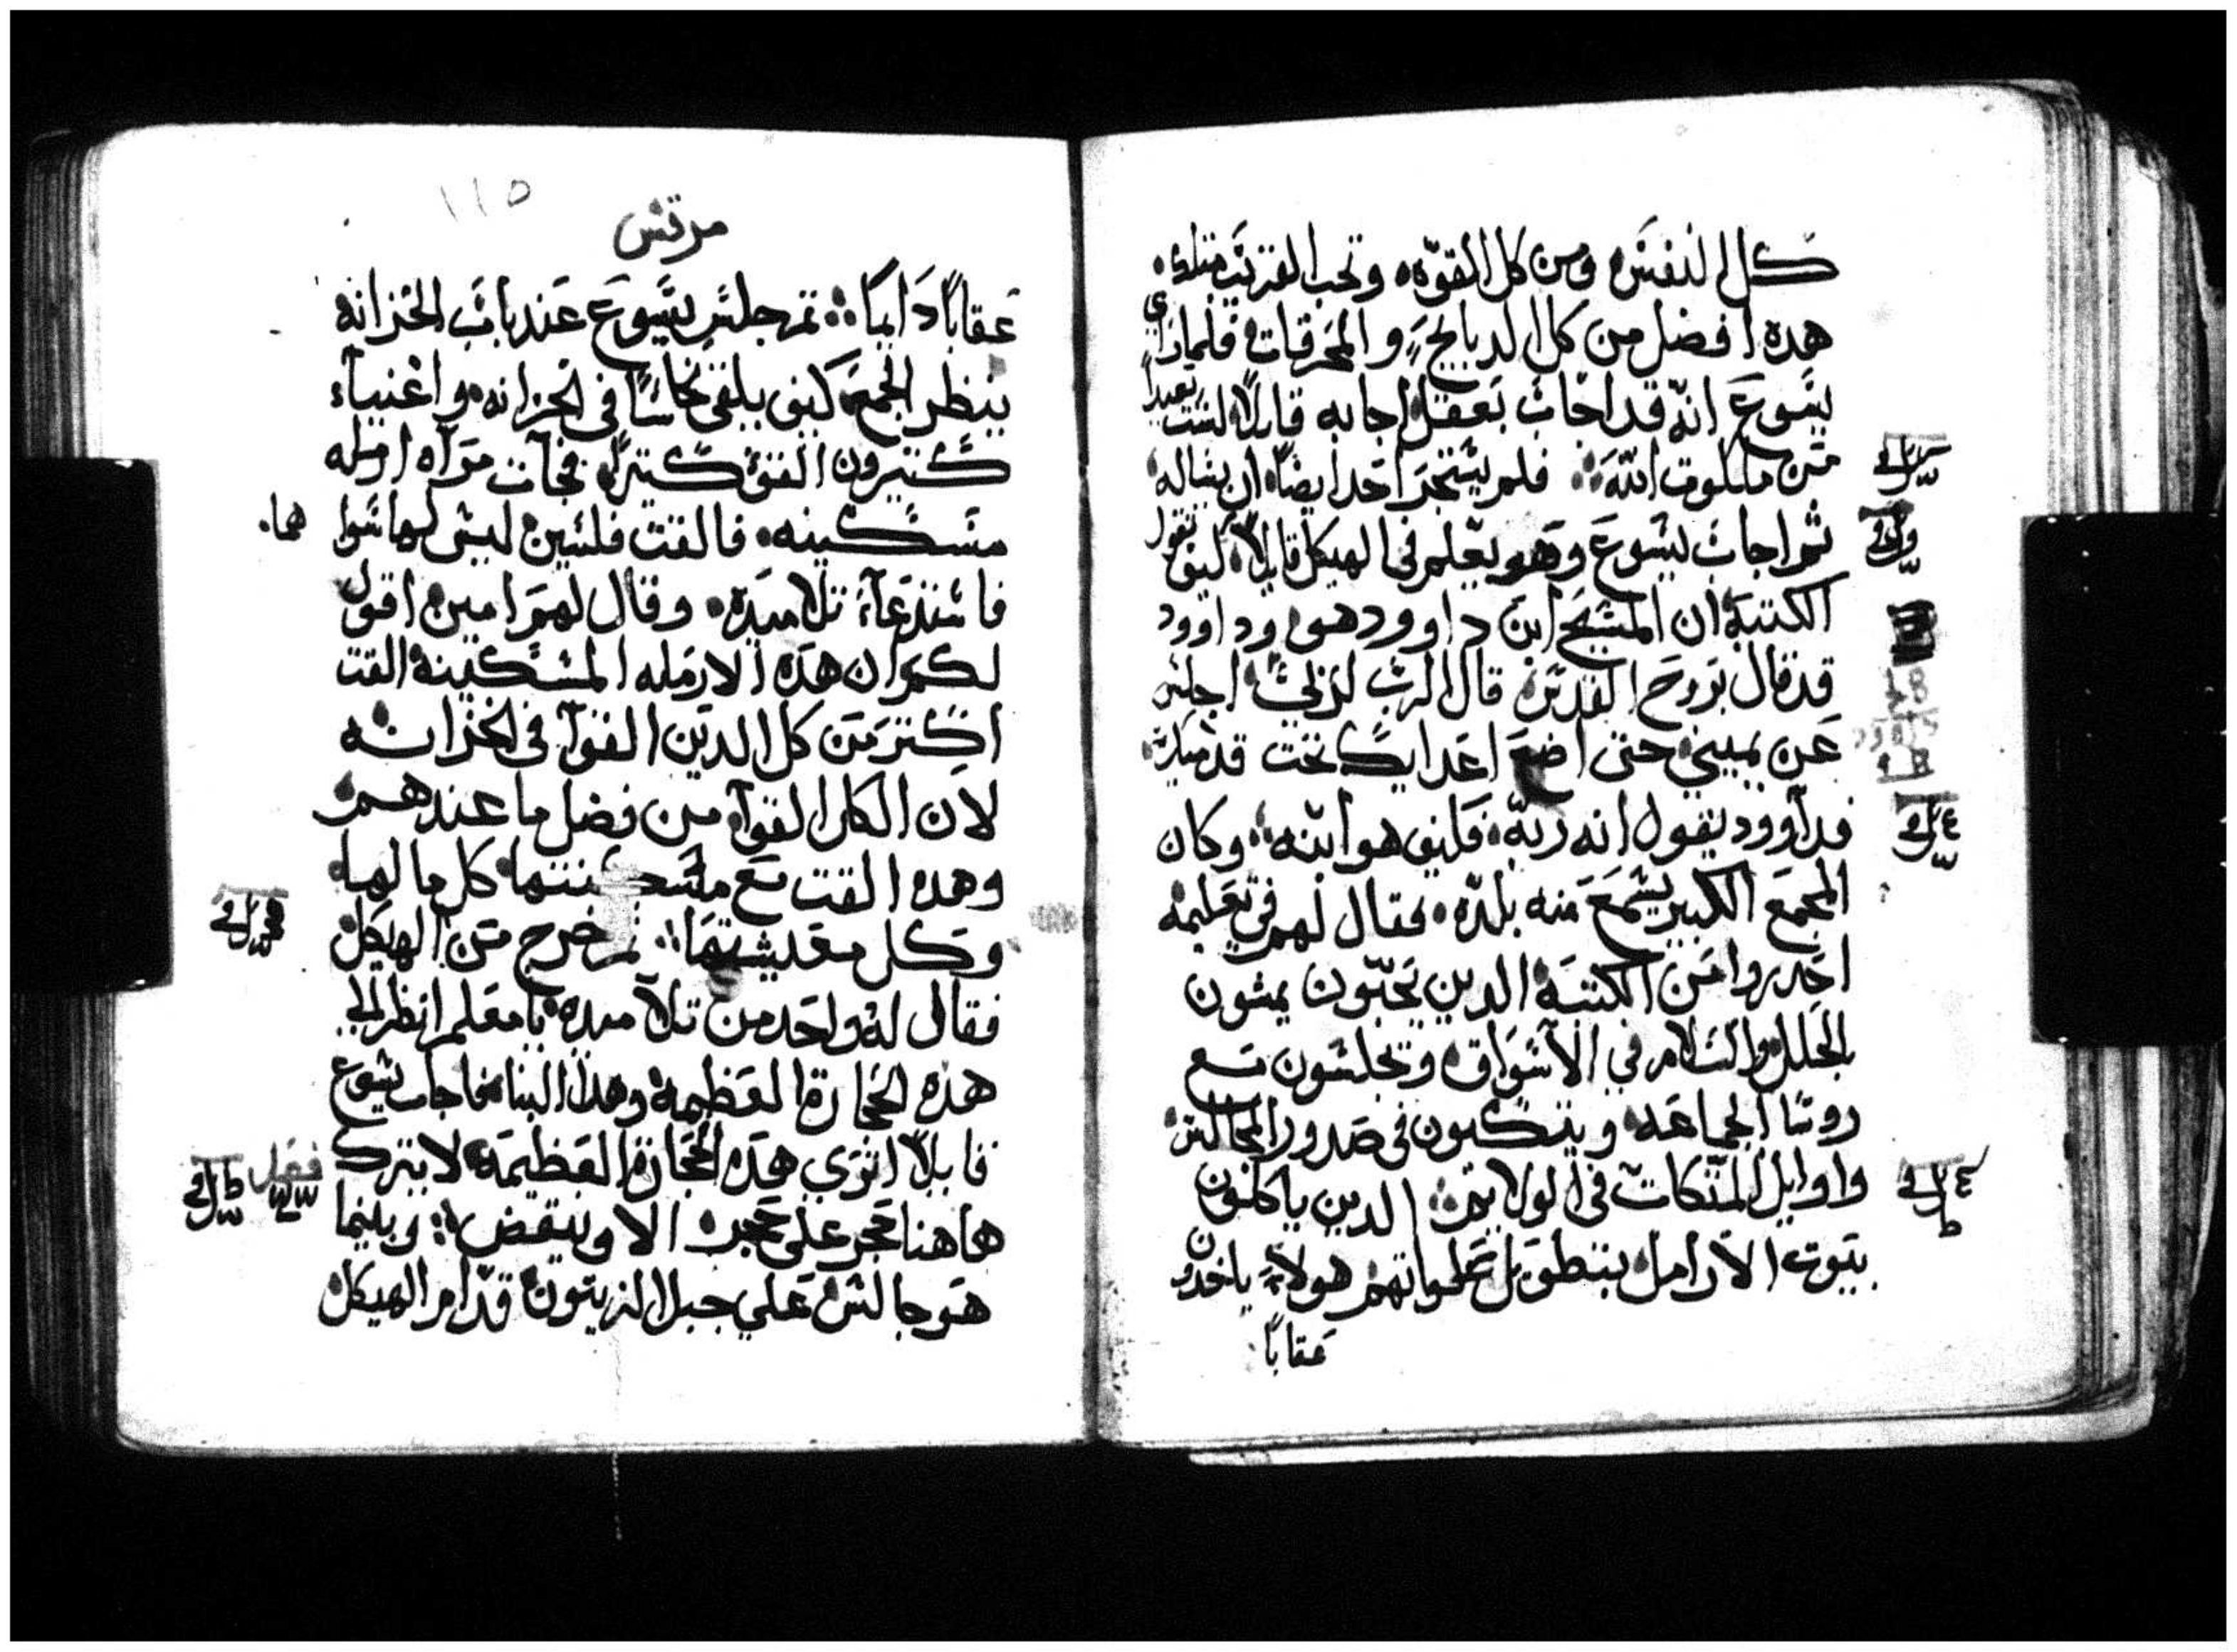 كل النفس ومن كل القوه وتحب القريب مثلك
هده افضل من كل الدبايح والمحرقات فلما راي
يسوع انه قد اجاب بعقل اجابه قايلا لست بعيدا
من ملكوت الله فلم يستجر احد ايضا ان يساله
ثم اجاب يسوع وهو يعلم في الهيكل قايلا كيف تقول
الكتبه ان المسيح ابن داوود هو وداوود
قد قال بروح القدس قال الرب لربي اجلس
عن يميني حتى اضع اعدايك تحت قدميك
فداوود يقول انه ربه فكيف هو ابنه وكان
المجمع الكبير يسمع منه بلده فقال لهم في تعليمه
احدروا من الكتبه الدين يحبون يمشون
بالحلل والسلام في الاسواق ويجلسون مع
روسا الجماعه ويتكيون في صدور المجالس
واوايل المتكات في الولايم الدين ياكلون
بيوت الارامل بتطويل صلواتهم هولاء ياخدون
عقابا
١١٥
مرقس
عقابا دايما ثم جلس يسوع عند باب الخزانه
ينظر الجمع كيف يلقي نحاسا في الخزانه واغنياء
كتيرون القوا كتيرا فجات مراه ارمله
مسكينه فالقت فلسين ليس لها سوا هما
فاستدعاء تلاميده وقال لهم امين اقول
لكم ان هده الارمله المسكينه القت
اكتر من كل الدين القوا في الخزانه
لان الكل القوا من فضل ما عندهم
وهده القت مع مسكنتها كل ما لها
وكل معيشتها ثم خرج من الهيكل
فقال له واحد من تلاميده يا معلم انظر الى
هده الحجارة العظيمه وهدا البنا فاجاب يسوع
قايلا اتري هده الحجارة العظيمه لا يترك
هاهنا حجر على حجر الا وينقض وبينما
هو جالس علي جبل الزيتون قدام الهيكل